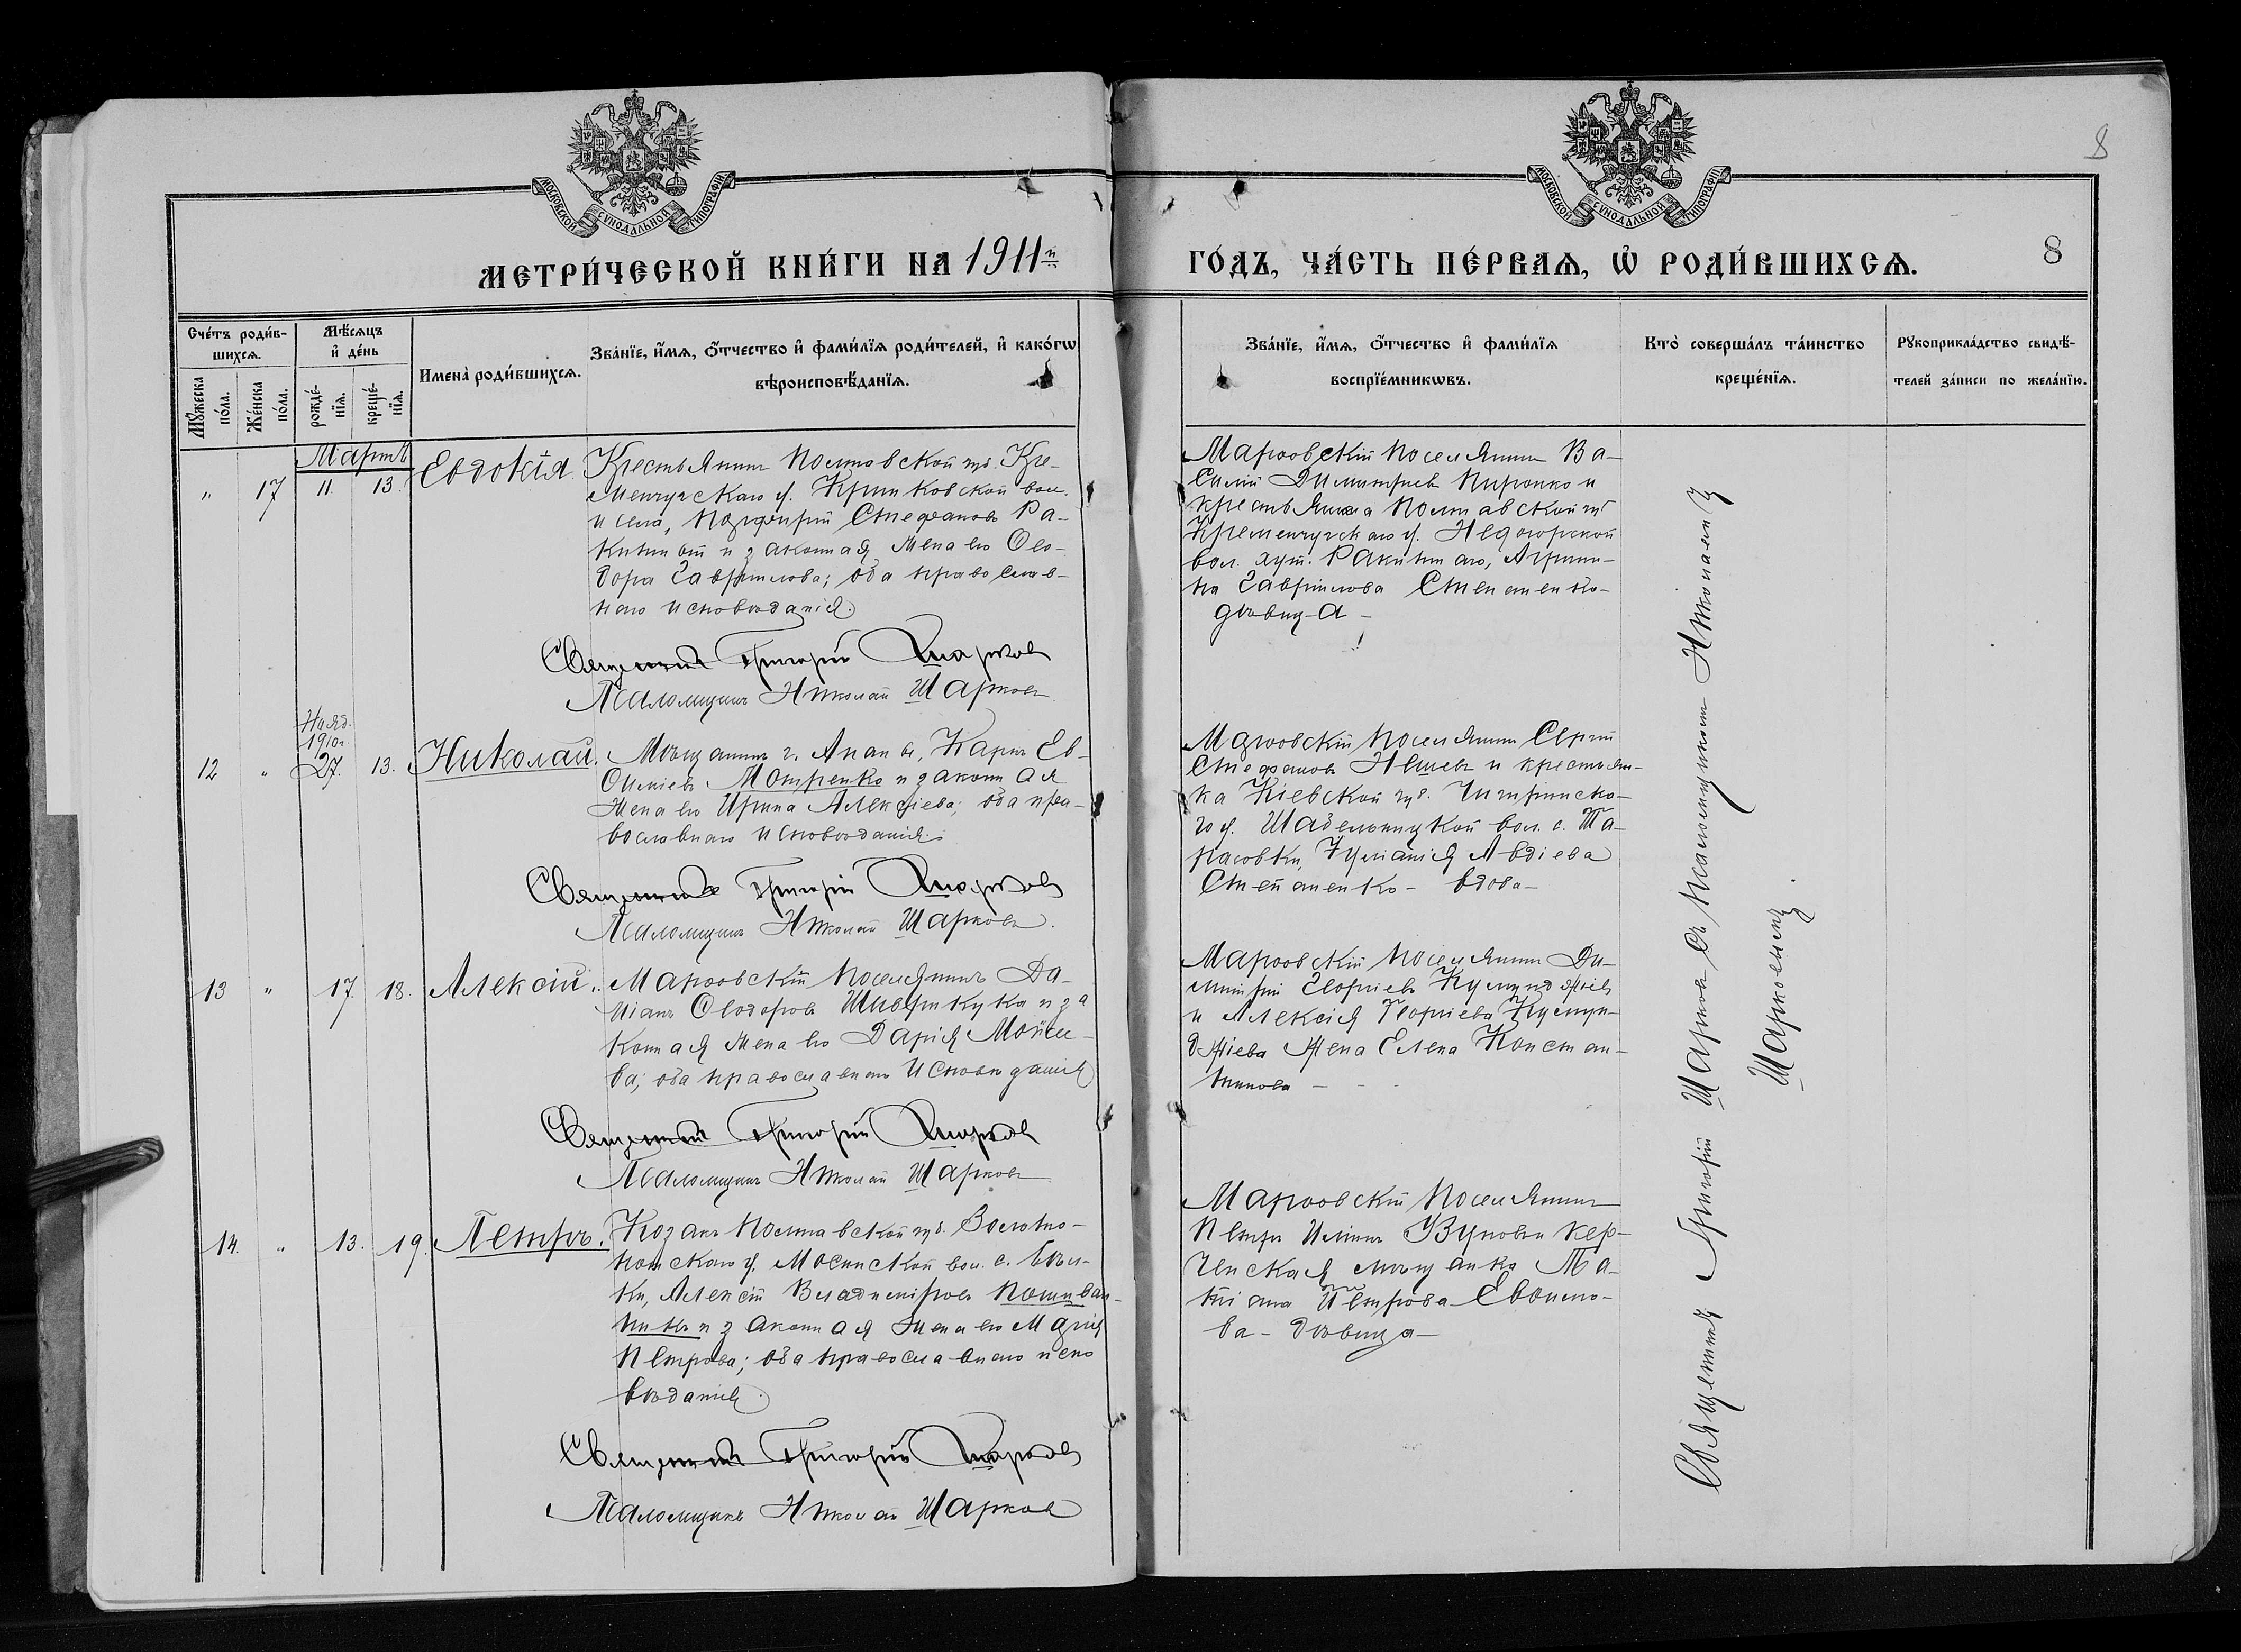 8
МОСКОВСКОЙ СУНОДАЛЬНОЙ ТИПОГРАФІИ
МОСКОВСКОЙ СУНОДАЛЬНОЙ ТИПОГРАФІИ
МЕТРИ́ЧЕСКОЙ КНИ́ГИ НА 1911й
ГО́ДЪ, ЧА́СТЬ ПЕ́РВАѦ, Ѡ҆ РОДИ́ВШИХСѦ. 8
Сче́тъ роди́в-
шихсѧ.
Мꙋ́жеска
по́ла.
Же́нска
по́ла.
Мѣ́сѧцъ
и҆ де́нь
рожде́-
нїѧ.
креще́-
нїѧ.
Имена̀ роди́вшихсѧ.
Зва́нїе, и҆́мѧ, ѻ҆́тчество и҆ фами́лїѧ роди́телей, и҆ како́гѡ
вѣроисповѣ́данїѧ.
Зва́нїе, и҆́мѧ, ѻ҆́тчество и҆ фами́лїѧ
воспрїе́мникѡвъ.
Кто̀ соверша́лъ та́инство
креще́нїѧ.
Рꙋкоприкла́дство свидѣ́-
телей за́писи по жела́нїю.
Мартъ
„ 17 11 13.
Евдокія
Крестьянинъ Полтавской губ. Кре-
менчугскаго у. Крюковской вол.
и села, Порфирій Стефановъ Ра-
китинъ и законная жена его Ѳео-
дора Гаврилова; оба православ-
наго исповѣданія.
Священникъ Григорій Шарковъ
Псаломщикъ Николай Шарковъ
Марѳовскій поселянинъ Ва-
силій Димитріевъ и
крестьянка Полтавской губ
Кременчугскаго у. Недогорской
вол. хут. Ракитнаго, Агрипи-
на Гаврилова Степаненко-
дѣвица-
12 „ Нояб. 1910г. 27. 13.
Николай.
Мѣщанинъ г. Анапы, Карпъ Ев-
симіевъ Мотренко и законная
жена его Ирина Алексѣева; оба пра-
вославнаго исповѣданія.
Священникъ Григорій Шарковъ
Псаломщикъ Николай Шарковъ.
Марѳовскій поселянинъ Сергій
Стефановъ Нешевъ и крестьян-
ка Кіевской губ. Чигиринска-
го у. Шабельницкой вол. с. Та-
расовки, Іуліанія Авдіева
Степаненко - вдова-
13 „ 17. 18.
Алексій.
Марѳовскій поселянинъ Да-
міанъ Ѳеодоровъ и за
конная жена его Дарія Моисее-
ва; оба православнаго исповѣданія
Священникъ Григорій Шарковъ
Псаломщикъ Николай Шарковъ
Марѳовскій поселянинъ Ди-
митрій Георгіевъ Кумунджіевъ
и Алексія Георгіева Кумун-
джіева жена Елена Констан-
тинова -
14. „ 13. 19.
Петръ.
Козакъ Полтавской губ. Золото-
ношскаго у. вол. с.
Алексій Владиміровъ
и законная жена его Марія
Петрова; оба православнаго испо
вѣданія.
Священникъ Григорій Шарковъ
Псаломщикъ Николай Шарковъ
Марѳовскій поселянинъ
Петръ Ильинъ Вуковъ и кер-
ченская мѣщанка Та-
тіана Петрова Евдимо-
ва- дѣвица-
Священникъ Григорій Шарковъ съ псаломщикомъ Николаемъ
Шарковымъ.